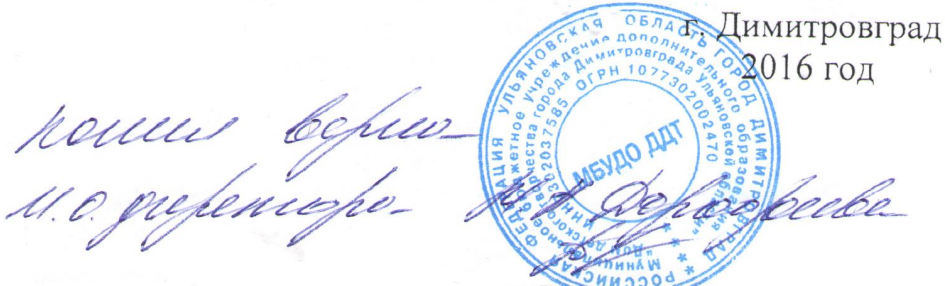 г. Димитровград
2016 год
копия верна
И.о. директора
МБУДО ДДТ
РОССИЙСКАЯ ФЕДЕРАЦИЯ УЛЬЯНОВСКАЯ ОБЛАСТЬ ГОРОД ДИМИТРОВГРАД
Муниципальное бюджетное учреждение дополнительного образования
"Дом детского творчества города Димитровграда Ульяновской области"
ОГРН 1077302002470